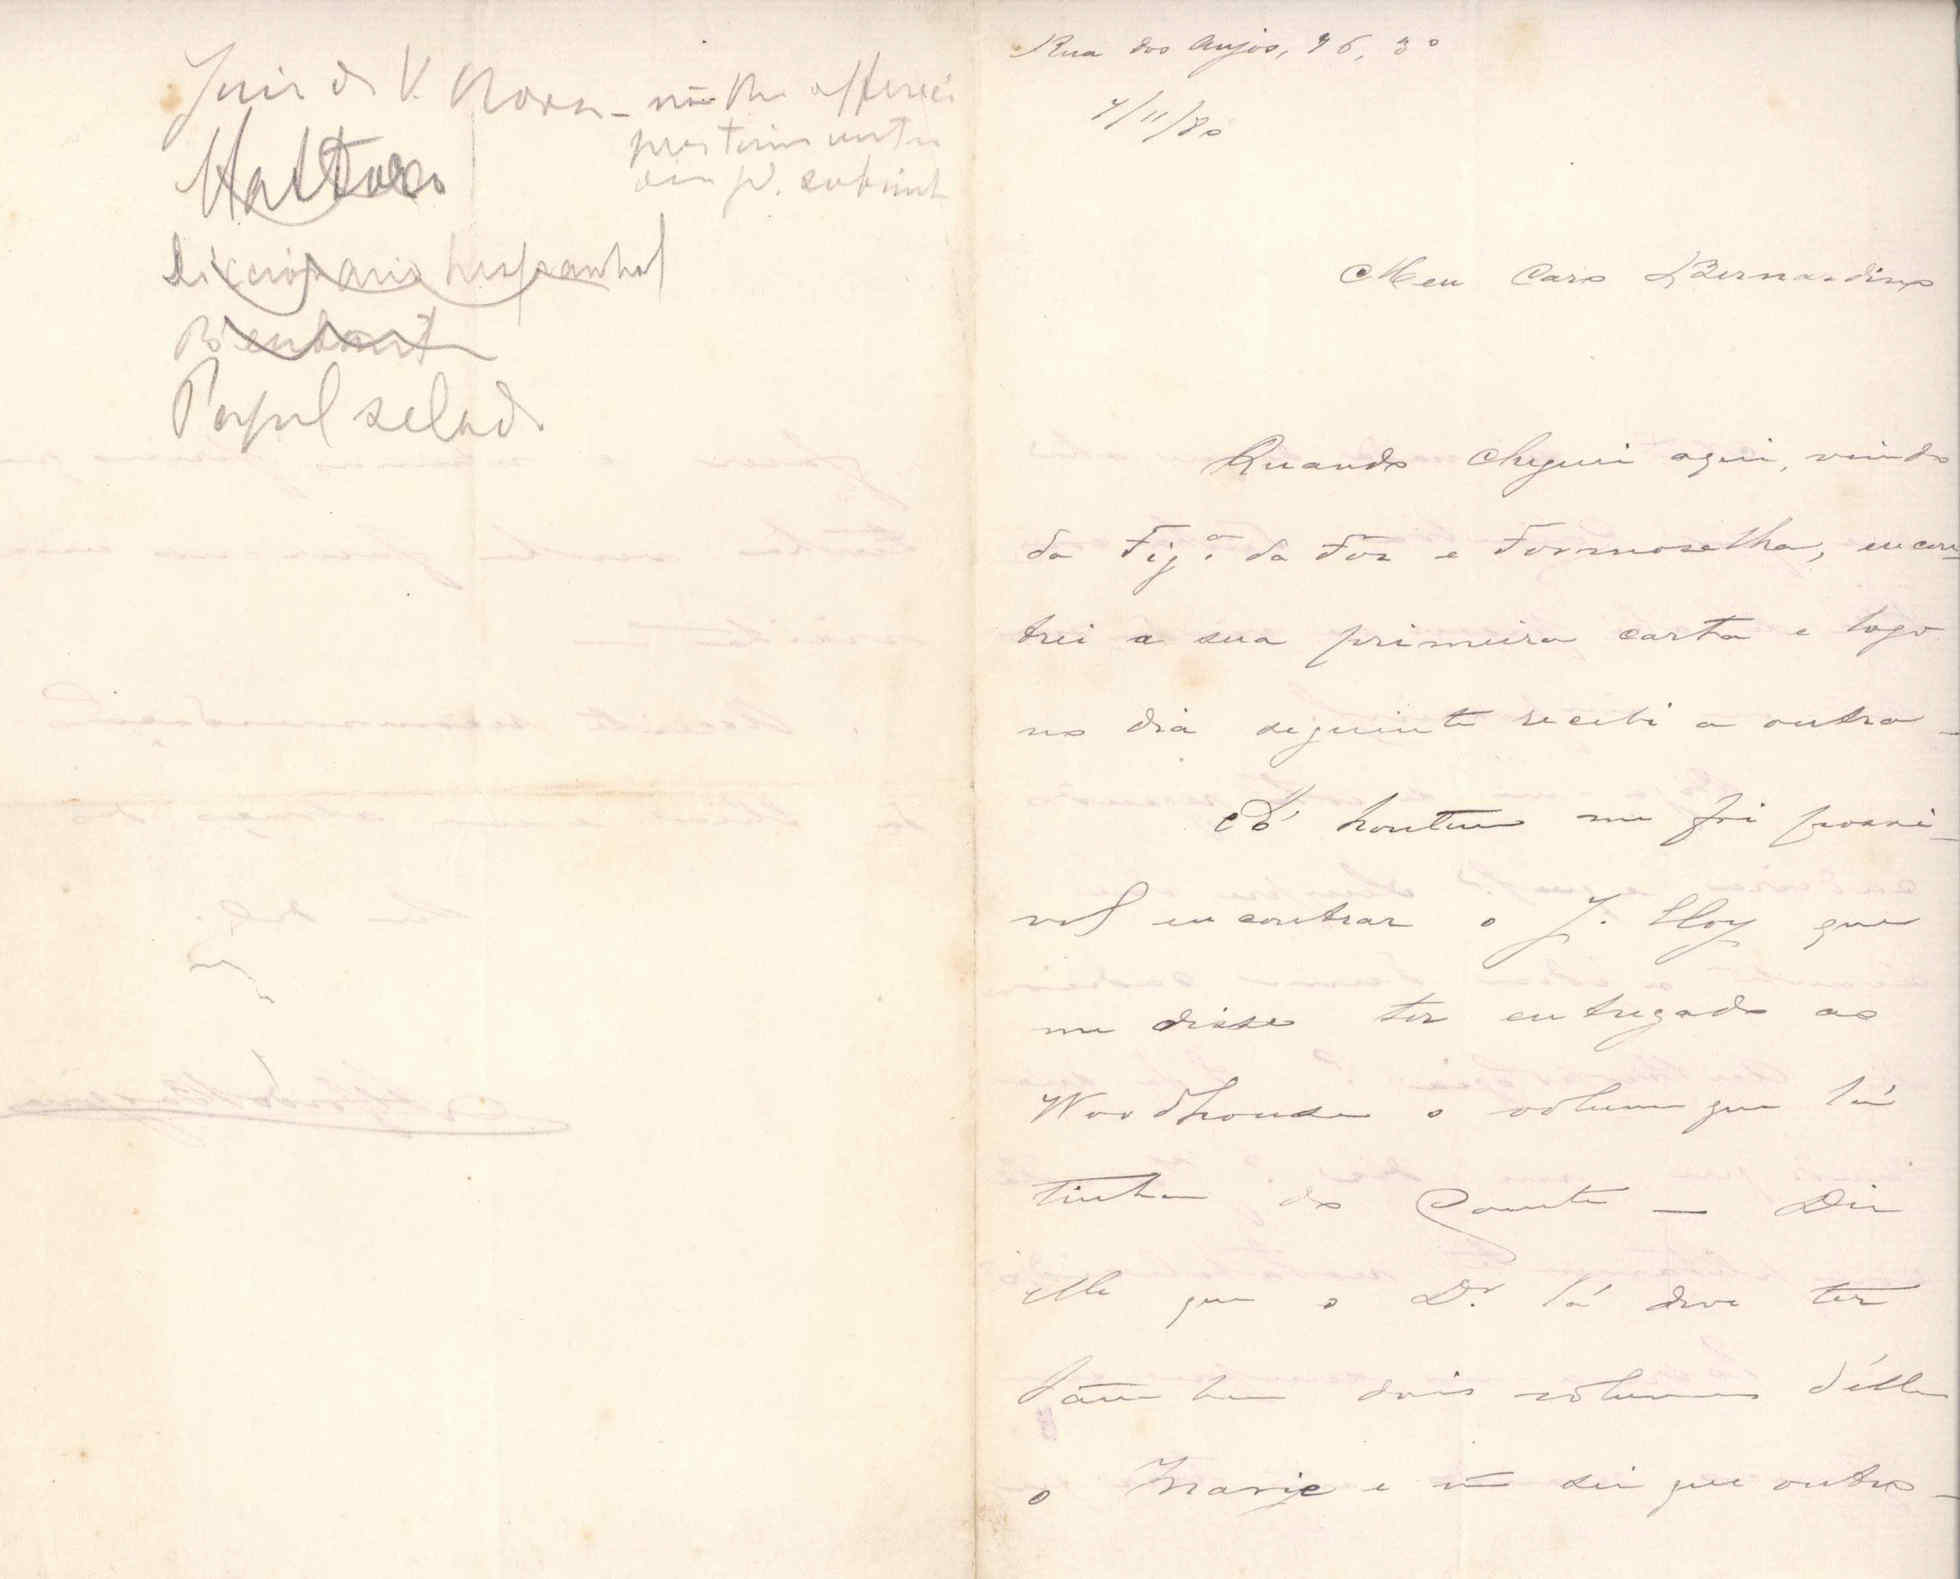 Juiz de V. Nova – não lhe offereci
prestimo
Mattoso
Diccionario hespanhol
Papel selado
Rua dos Anjos, 76, 3º
7/11/80
Meu Caro Bernardino
Quando cheguei aqui, vindo
da Fig.ª da Foz e Formoselha, encon-
trei a sua primeira carta e logo
no dia seguinte recebi a outra –
Só hontem me foi possi-
vel encontrar o J. Eloy que
me disse ter entregado ao
Woodhouse o volume que lá
tinha do Comte – Diz
elle que o Dr. lá deve ter
tambem dois volumes d'elle
o Marie e não sei que outro –